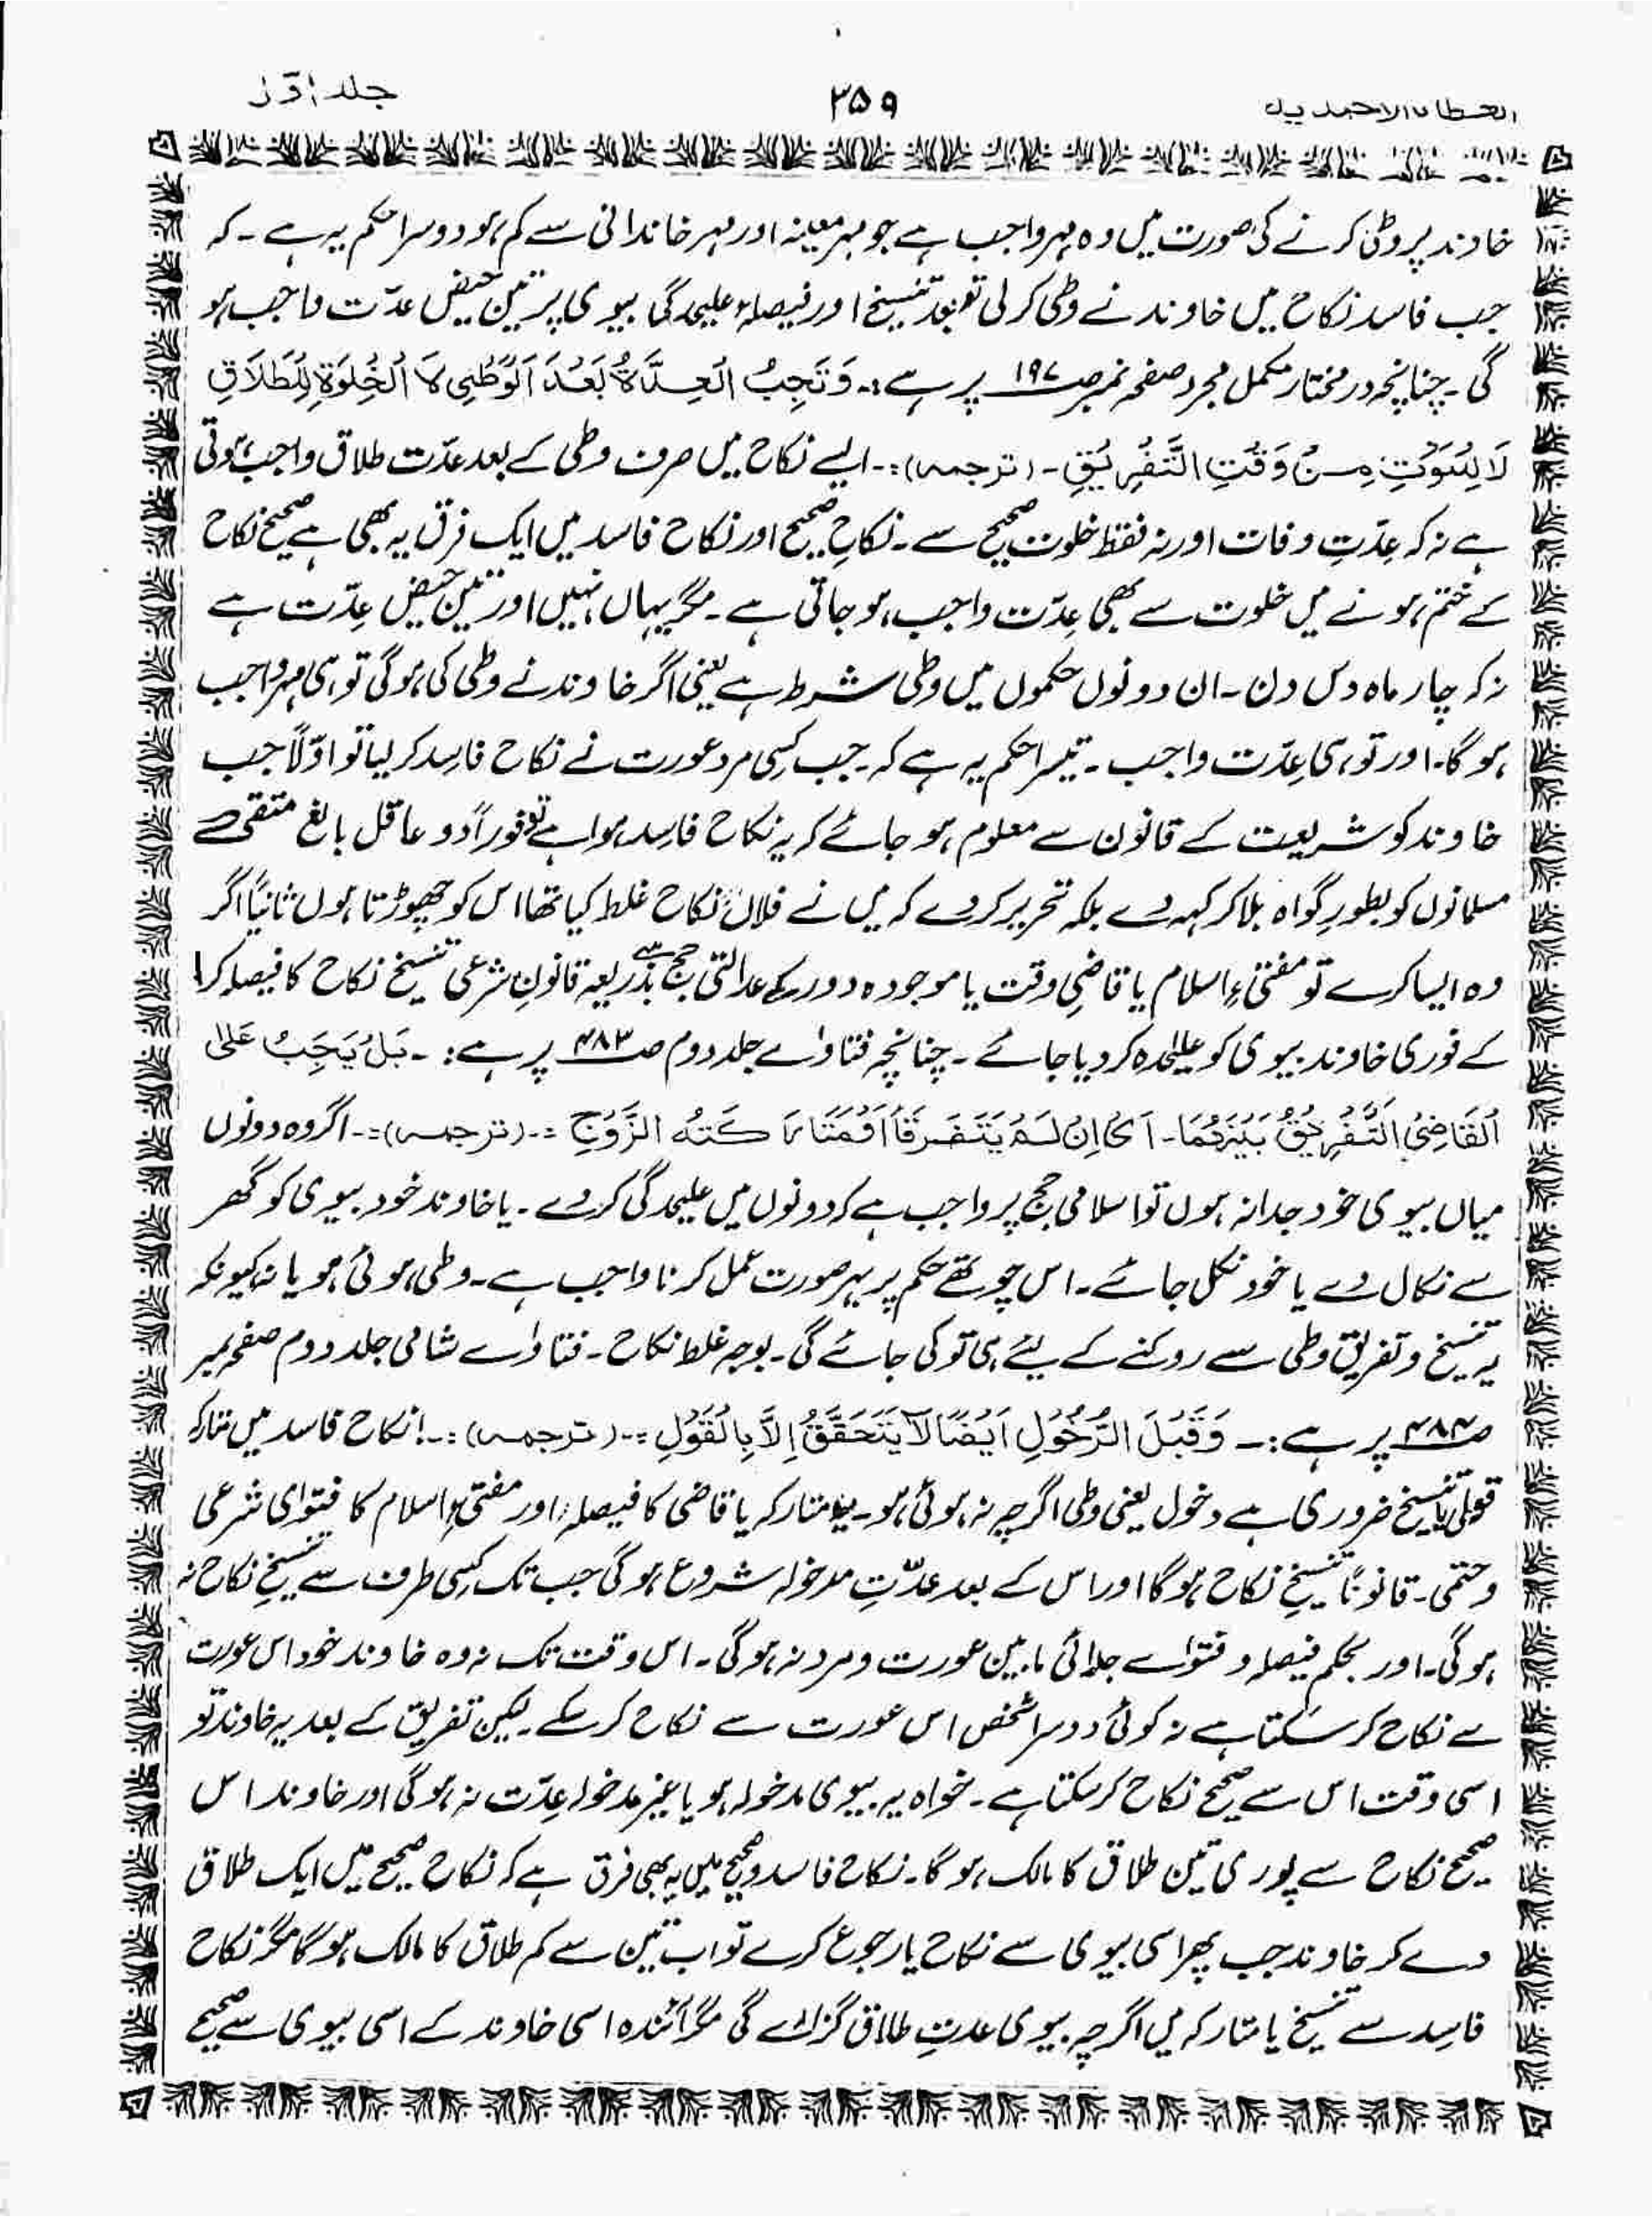 العطایا الاحمدیہ ۳۵۹ جلد اوّل
خاوند پر وطی کرنے کی صورت میں وہ مہر واجب ہے جو مہر معینہ اور مہر خاندانی سے کم ہو دوسرا حکم یہ ہے ۔ کہ
جب فاسد نکاح میں خاوند نے وطی کر لی تو بعدِ تنسیخ اور فیصلہءِ علیحدگی بیوی پر تین حیض عدّت واجب ہو
گی ۔ چنانچہ در مختار مکمل مجرد صفحہ نمبر صـ۱۹۷ پر ہے :۔ وَتَجِبُ الْعِدَّۃُ بَعْدَ الْوَطْیِ لَا الْخَلْوَۃِ لِلطَّلَاقِ
لَا لِلْمَوْتِ مِنْ وَقْتِ التَّفْرِیْقِ ۔ (ترجمہ) :۔ ایسے نکاح میں صرف وطی کے بعد عدّت طلاق واجب ہوتی
ہے نہ کہ عِدّتِ وفات اور نہ فقط خلوت صحیح سے ۔ نکاحِ صحیح اور نکاح فاسد میں ایک فرق یہ بھی ہے صحیح نکاح
کے ختم ہونے میں خلوت سے بھی عِدّت واجب ہو جاتی ہے ۔ مگر یہاں نہیں اور تین حیض عِدّت ہے
نہ کہ چار ماہ دس دن ۔ ان دونوں حکموں میں وطی شرط ہے یعنی اگر خاوند نے وطی کی ہو گی تو ہی مہر واجب
ہو گا ۔ اور تو ہی عِدّت واجب ۔ تیسرا حکم یہ ہے کہ جب کسی مرد عورت نے نکاح فاسِد کر لیا تو اوّلاً جب
خاوند کو شریعت کے قانون سے معلوم ہو جائے کہ یہ نکاح فاسِد ہوا ہے تو فوراً دو عاقل بالغ متقی
مسلمانوں کو بطورِ گواہ بلا کر کہہ دے بلکہ تحریر کر دے کہ میں نے فلاں نکاح غلط کیا تھا اس کو چھوڑتا ہوں ثانیاً اگر
وہ ایسا کرے تو مفتیءِ اسلام یا قاضیِ وقت یا موجودہ دور کے عدالتی جج سے بذریعہ قانونِ شرعی تنسیخ نکاح کا فیصلہ کرا
کے فوری خاوند بیوی کو علیحدہ کر دیا جائے ۔ چنانچہ فتاوٰے جلد دوم صـ۴۸۳ پر ہے : ۔ بَلْ یَجِبُ عَلَی
الْقَاضِیْ التَّفْرِیْقُ بَیْنَہُمَا ۔ اَیْ اِنْ لَمْ یَتَفَرَّقَا :۔ (ترجمہ) :۔ اگر وہ دونوں
میاں بیوی خود جدا نہ ہوں تو اسلامی جج پر واجب ہے کہ دونوں میں علیحدگی کر دے ۔ یا خاوند خود بیوی کو گھر
سے نکال دے یا خود نکل جائے ۔ اس چوتھے حکم پر بہر صورت عمل کرنا واجب ہے ۔ وطی ہوئی ہو یا نہ کیونکہ
یہ تنسیخ و تفریق وطی سے روکنے کے لیئے ہی تو کی جائے گی ۔ بوجہ غلط نکاح ۔ فتاوٰے شامی جلد دوم صفحہ نمبر
صـ۴۸۴ پر ہے :۔ وَقَبْلَ الدُّخُوْلِ اَیْضًا لَا یَتَحَقَّقُ اِلَّا بِالْقَوْلِ :۔ (ترجمہ) :۔ نکاح فاسد میں متارکہ
قولی یا تنسیخ ضروری ہے دخول یعنی وطی اگرچہ نہ ہوئی ہو ۔ یہ متارکہ یا قاضی کا فیصلہ اور مفتیِ اسلام کا فتوٰی شرعی
و حتمی ۔ قانوناً تنسیخِ نکاح ہو گا اور اس کے بعد عدّتِ مدخولہ شروع ہو گی جب تک کسی طرف سے تنسیخِ نکاح نہ
ہو گی ۔ اور بحکمِ فیصلہ و فتوٰے جدائی مابین عورت و مرد نہ ہو گی ۔ اس وقت تک نہ وہ خاوند خود اس عورت
سے نکاح کر سکتا ہے نہ کوئی دوسرا شخص اس عورت سے نکاح کر سکے ۔ لیکن تفریق کے بعد یہ خاوند تو
اسی وقت اس سے صحیح نکاح کر سکتا ہے ۔ خواہ یہ بیوی مدخولہ ہو یا غیر مدخولہ عِدّت نہ ہو گی اور خاوند اس
صحیح نکاح سے پوری تین طلاق کا مالک ہو گا ۔ نکاح فاسد و صحیح میں یہ بھی فرق ہے کہ نکاح صحیح میں ایک طلاق
دے کر خاوند جب پھر اسی بیوی سے نکاح یا رجوع کرے تو اب تین سے کم طلاق کا مالک ہو گا مگر نکاح
فاسِد سے تنسیخ یا متارکہ میں اگرچہ بیوی عدتِ طلاق گزارے گی مگر آئندہ اسی خاوند کے اسی بیوی سے صحیح